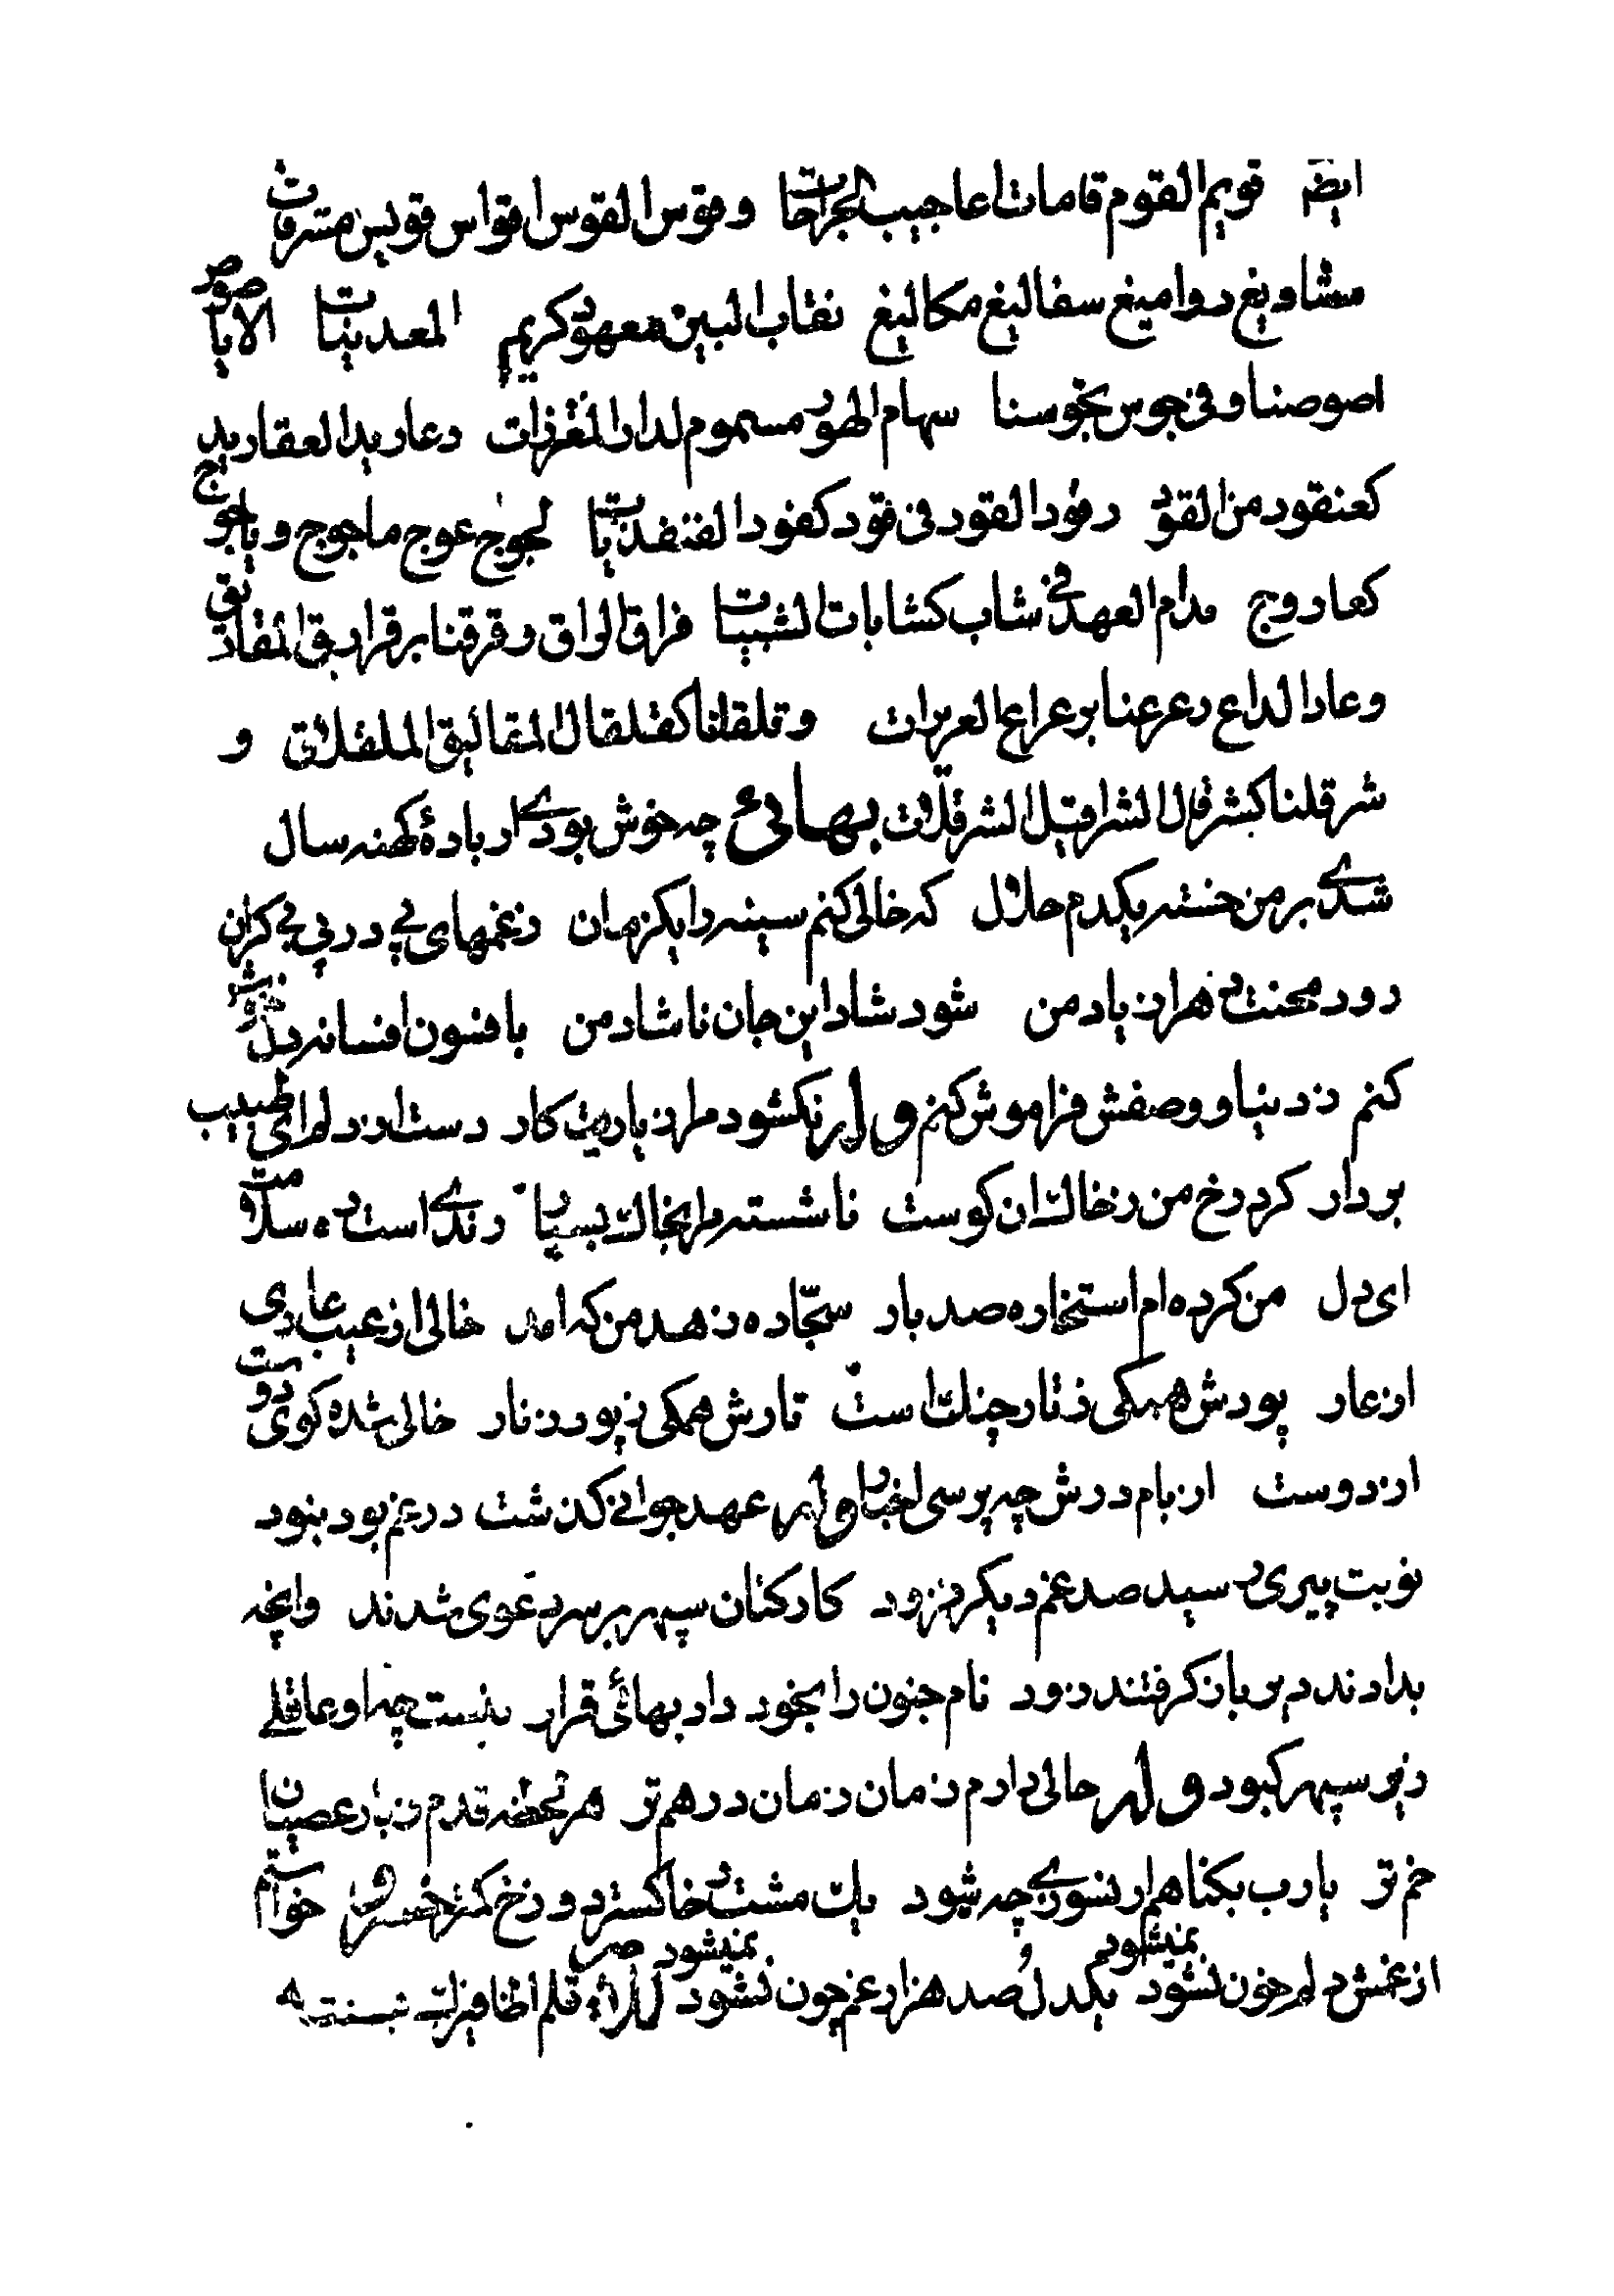 ایضا قویم القوم قامات اعاجیب الجراحات وقوس القوس اقواس قویس مترقات
مشاویغ دوامیغ سفالیغ مکالیغ نقاب البین معهود کریم المعدنیات الایا صوصر
اصوصنا وفی جوس بجوسنا سهام الطود مسموم لدار المغرزات دعاریدا لعقارید
کعنقود من القود رقود القود فی قود کفود الفنفدیات لجوج عوج ماجوج و یاجوج
کعاروج مدام العهد فی شاب کشابات الشبیبات فراق الواق وقرقنا برقراریق
وعاد الداع دعرعنا برعراع العریرات وقلقلنا کقلقال المقالیق الملقلات و
شرقلنا کشرقال الشراقیل الشرقلات بهائی چه خوش بودی ار بادهٔ کهنه سال
شدی بر من خسته یکدم حلال که خالی کنم سینه را یکزمان زغمهای پی در پی بی کران
رود محنت دهر از یاد من شود شاد این جان ناشاد من بافسون افسانه دل خوش
کنم ز دنیا و وصفش فراموش کنم وله نکشود مرا زیاریت کار دست از دلم ای طبیب
بردار کرد رخ من زخاک ان کوست ناشسته مرا بخاک بسپار رندی است ره سلامت
ای دل من کرده ام استخاره صد بار سجّاده زهد من که امد خالی از عیب عاری
از عار پودش همکی زتار چنک است تارش همکی زپود زنار خالی شده کوی دوست
از دوست از بام و درش چه پرسی اخبار وله عهد جوانی کذشت در غم بود بنود
نوبت پیری رسید صد غم دیکر فزود کارکنان سپهر بر سر دعوی شدند وانچه
بدادند دیر باز کرفتند زود نام جنون را بخود داد بهائی قرار نیست چه او عاقلی
زیر سپهر کبود وله حالی دارم زمان زمان درهم تر هر لحظه قدم زبار عصیان
خم تر یارب بکناهم ار بسوزی چه شود یک مشت خاکستر دوزخ کمتر خواستم
از غمش دلم خون نشود نمیشود یکدل و صد هزار غم چون نشود نمیشود